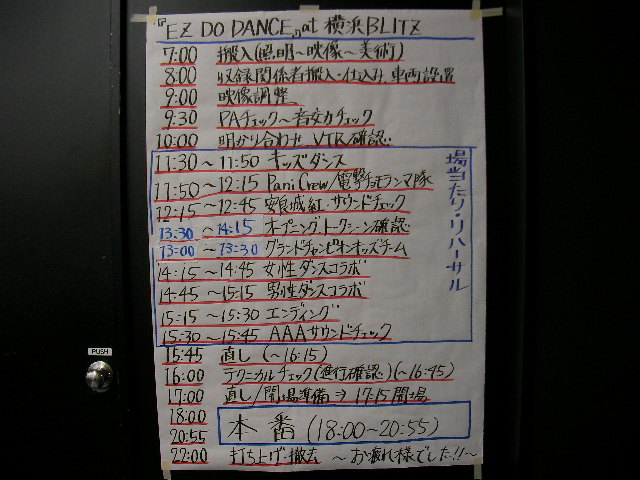 『EZ DO DANCE』at 横浜BLITZ
7:00 搬入(照明〜映像〜美術)
8:00 収録関係者搬入・仕込み、車両設置
9:00 映像調整
9:30 PAチェック〜音出力チェック
10:00 明かり合わせ VTR確認
11:30〜11:50 キッズダンス
11:50〜12:15 Pani Crew/電撃チョモランマ隊
12:15〜12:45 安良城紅・サウンドチェック
13:30〜14:15 オープニング・トークシーン確認
13:00〜13:30 グランドチャンピオンキッズチーム
14:15〜14:45 女性ダンスコラボ
14:45〜15:15 男性ダンスコラボ
15:15〜15:30 エンディング
15:30〜15:45 AAAサウンドチェック
場当たり・リハーサル
15:45 直し (〜16:15)
16:00 テクニカルチェック(進行確認)(〜16:45)
17:00 直し/開場準備⇒17:15開場
18:00
20:55
本番 (18:00〜20:55)
22:00 打ち上げ・撤去 〜お疲れ様でした!!〜
PUSH